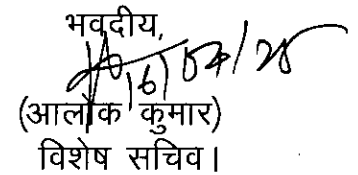 भवदीय,
16/04/25
(आलोक कुमार)
विशेष सचिव।